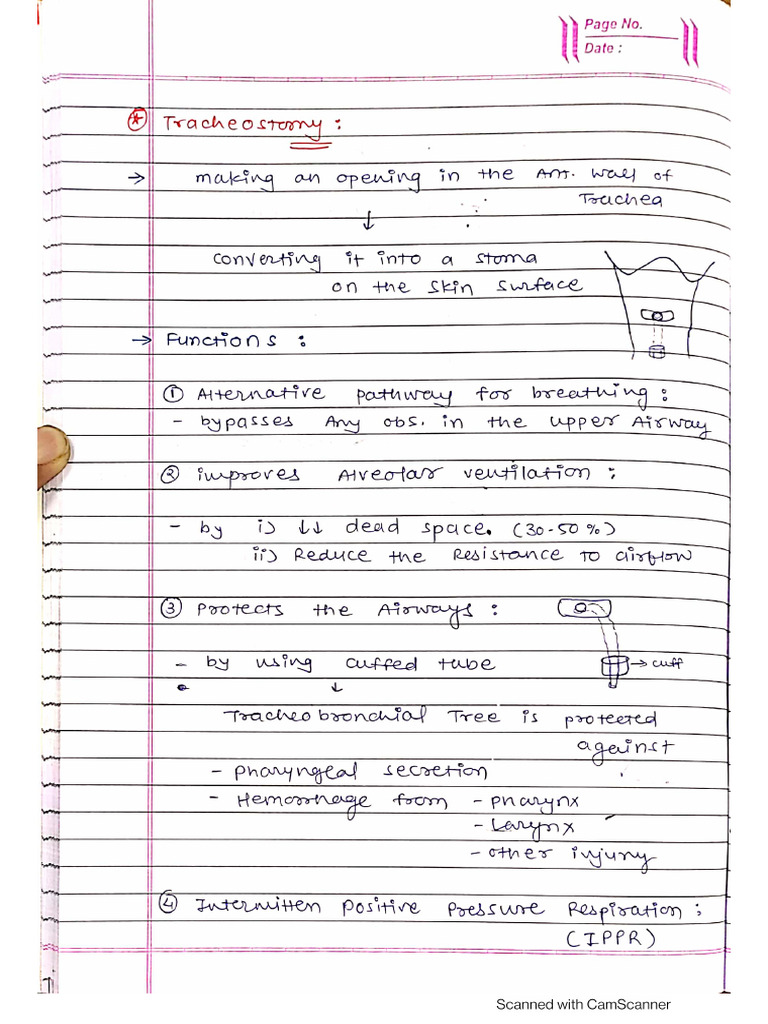 Page No.
Date :
* Tracheostomy :
→ making an opening in the Ant. wall of
Trachea
↓
converting it into a stoma
on the skin surface
→ Functions :
① Alternative pathway for breathing :
- bypasses Any obs. in the upper Airway
② improves Alveolar ventilation :
- by i) ↓↓ dead space. (30-50%)
ii) Reduce the Resistance to airflow
③ Protects the Airways :
- by using cuffed tube → cuff
↓
Tracheobronchial Tree is protected
against
- pharyngeal secretion
- Hemorrhage from - pharynx
- Larynx
- other injury
④ Intermitten positive Pressure Respiration :
(IPPR)
Scanned with CamScanner